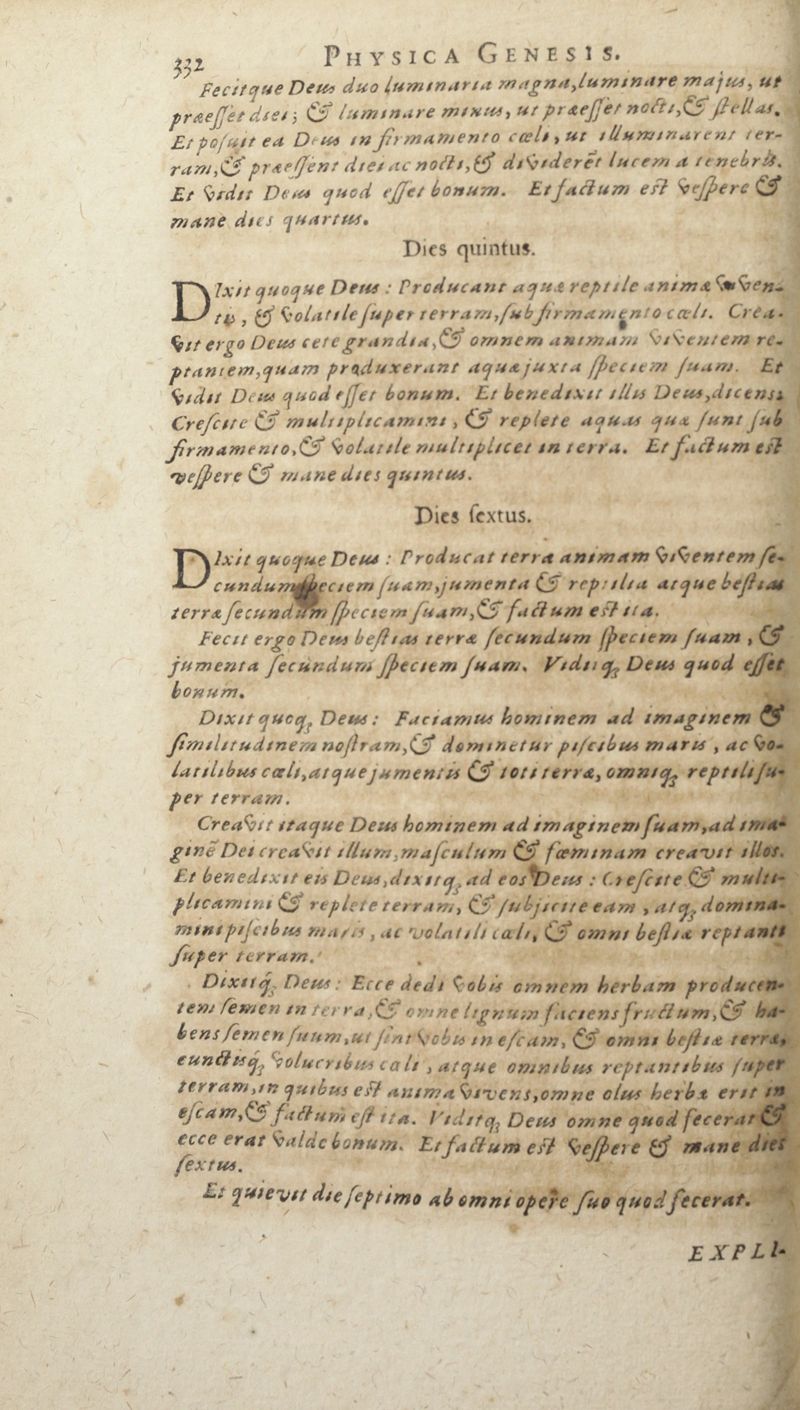 332 PHYSICA GENESIS.
Fecitque Deus duo luminaria magna, luminare majus, ut
præesset diei; & luminare minus, ut præesset nocti, & stellas.
Et posuit ea Deus in firmamento cœli, ut illuminarent ter-
ram, & præessent diei ac nocti, & divideret lucem a tenebris.
Et vidit Deus quod esset bonum. Et factum est vespere &
mane dies quartus.
Dies quintus.
DIxit quoque Deus : Producant aquæ reptile animæ viven-
tis, & volatile super terram, sub firmamento cœli. Crea-
vit ergo Deus cete grandia, & omnem animam viventem re-
ptantem, quam produxerant aquæ juxta speciem suam. Et
vidit Deus quod esset bonum. Et benedixit illis Deus, dicens:
Crescite & multiplicamini, & replete aquas quæ sunt sub
firmamento, & volatile multiplicet in terra. Et factum est
vespere & mane dies quintus.
Dies sextus.
DIxit quoque Deus : Producat terra animam viventem se-
cundum speciem suam, jumenta & reptilia atque bestias
terræ secundum speciem suam, & factum est ita.
Fecit ergo Deus bestias terræ secundum speciem suam, &
jumenta secundum speciem suam. Viditq; Deus quod esset
bonum.
Dixit quoq; Deus : Faciamus hominem ad imaginem &
similitudinem nostram, & dominetur piscibus maris, ac vo-
latilibus cœli, atque jumentis & toti terræ, omniq; reptili su-
per terram.
Creavit itaque Deus hominem ad imaginem suam, ad ima-
ginē Dei creavit illum, masculum & fœminam creavit illos.
Et benedixit eis Deus, dixitq; ad eos Deus : Crescite & multi-
plicamini & replete terram, & subjicite eam, atq; domina-
mini piscibus maris, ac volatili cœli, & omni bestiæ reptanti
super terram.
Dixitq; Deus : Ecce dedi vobis omnem herbam producen-
tem semen in terra, & omne lignum faciens fructum, & ha-
bens semen suum, ut sint vobis in escam, & omni bestiæ terræ,
cunctisq; volucribus cœli, atque omnibus reptantibus super
terram, in quibus est anima vivens, omne olus herbæ erit in
escam, & factum est ita. Viditq; Deus omne quod fecerat &
ecce erat valde bonum. Et factum est vespere & mane dies
sextus.
Et quievit die septimo ab omni opere suo quod fecerat.
EXPLI-